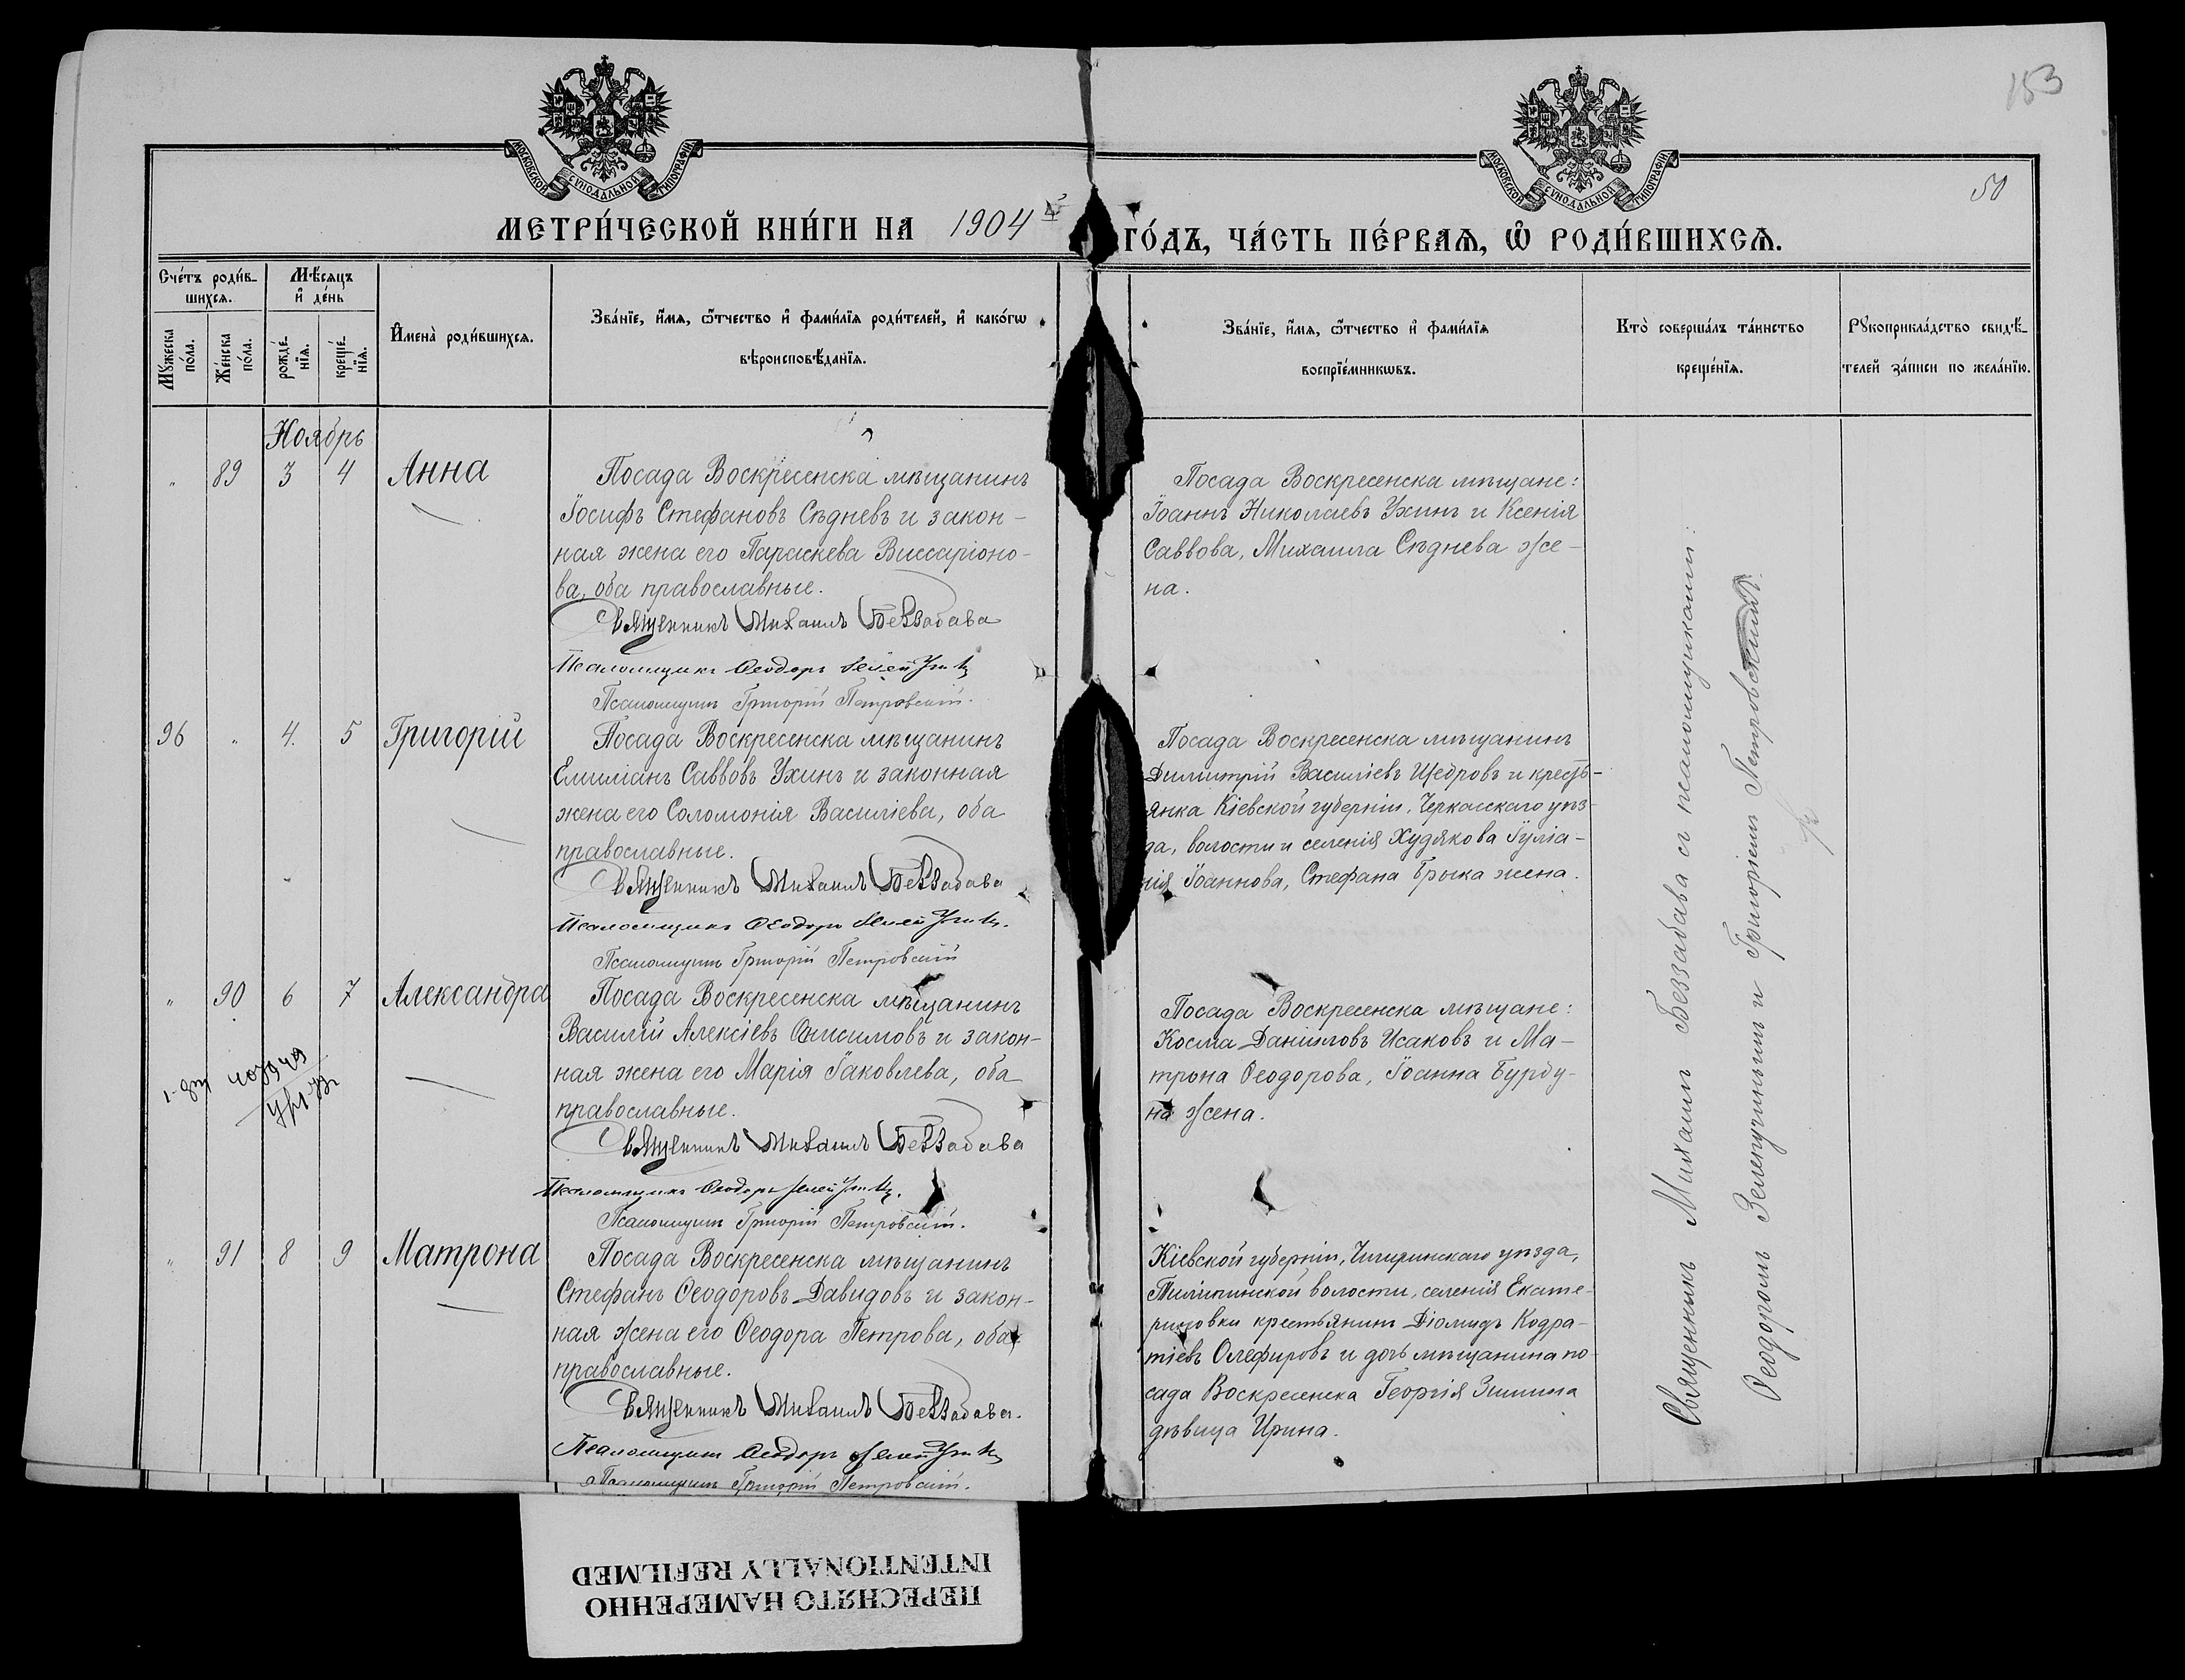 153
50
МОСКОВСКОЙ СѴНОДАЛЬНОЙ ТИПОГРАФІИ
МОСКОВСКОЙ СѴНОДАЛЬНОЙ ТИПОГРАФІИ
МЕТРИ́ЧЕСКОЙ КНИ́ГИ НА 1904 й ГО́ДЪ, ЧА́СТЬ ПЕ́РВАѦ, Ѽ РОДИ́ВШИХСѦ.
Сче́тъ роди́в-
шихсѧ.
Мꙋжеска по́ла.
Же́нска по́ла.
Мѣ́сѧцъ
и҆ де́нь
рожде́-
нїѧ.
креще́-
нїѧ.
И҆мена̀ роди́вшихсѧ.
Зва́нїе, и҆́мѧ, ѻ҆́тчество и҆ фами́лїѧ роди́телей, и҆ како́гѡ
вѣроисповѣ́данїѧ.
Зва́нїе, и҆́мѧ, ѻ҆́тчество и҆ фами́лїѧ
воспрїе́мникѡвъ.
Кто̀ соверша́лъ та́инство
креще́нїѧ.
Рꙋкоприкла́дство свидѣ́-
телей за́писи по жела́нїю.
Ноябрь
„ 89 3 4 Анна
Посада Воскресенска мѣщанинъ
Іосифъ Стефановъ Сѣдневъ и закон-
ная жена его Параскева Виссаріоно-
ва, оба православные.
Священникъ Михаилъ Беззабава
Псаломщикъ Ѳеодоръ
Псаломщикъ Григорій Петровскій.
Посада Воскресенска мѣщане:
Іоаннъ Николаевъ Ухинъ и Ксенія
Саввова, Михаила Сѣднева же-
на.
96 „ 4. 5 Григорій
Посада Воскресенска мѣщанинъ
Емиліанъ Саввовъ Ухинъ и законная
жена его Соломонія Василіева, оба
православные.
Священникъ Михаилъ Беззабава
Псаломщикъ Ѳеодоръ
Псаломщикъ Григорій Петровскій
Посада Воскресенска мѣщанинъ
Димитрій Василіевъ Щедровъ и кресть-
янка Кіевской губерніи, Черкасскаго уѣз-
да, волости и селенія Худякова Іуліа-
нія Іоаннова, Стефана Брыка жена.
„ 90 6 7 Александра
Посада Воскресенска мѣщанинъ
Василій Алексіевъ Онисимовъ и закон-
ная жена его Марія Іаковлева, оба
православные.
Священникъ Михаилъ Беззабава
Псаломщикъ Ѳеодоръ
Псаломщикъ Григорій Петровскій.
Посада Воскресенска мѣщане:
Косма Даніиловъ Исаковъ и Ма-
трона Ѳеодорова, Іоанна Бурду-
на жена.
„ 91 8 9 Матрона
Посада Воскресенска мѣщанинъ
Стефанъ Ѳеодоровъ Давидовъ и закон-
ная жена его Ѳеодора Петрова, оба
православные.
Священникъ Михаилъ Беззабава.
Псаломщикъ Ѳеодоръ
Псаломщикъ Григорій Петровскій.
Кіевской губерніи, Чигиринскаго уѣзда,
волости, селенія Екате-
риновки крестьянинъ Діомидъ Кодра-
тіевъ Олефировъ и дочь мѣщанина по-
сада Воскресенска Георгія Зимина
дѣвица Ирина.
Священникъ Михаилъ Беззабава съ псаломщиками:
Ѳеодоромъ и Григоріемъ Петровскимъ.
ПЕРЕСНЯТО НАМЕРЕННО
INTENTIONALLY REFILMED